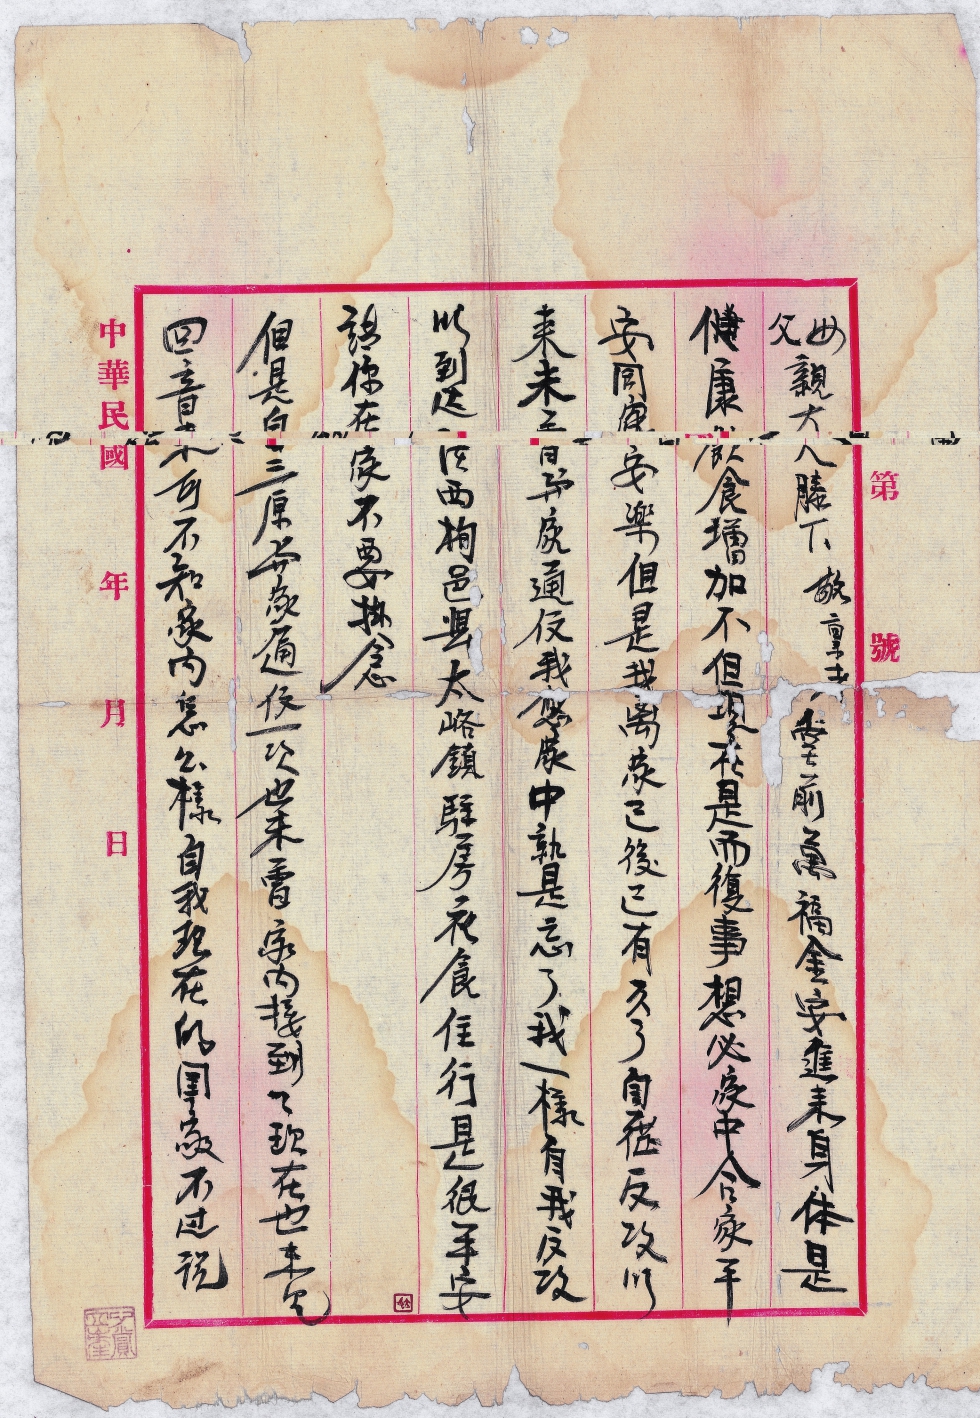 第 號
父母親大人膝下 敬稟者 前萬福金安進來身体是
健康飲食增加不但現在是而復事想必家中合家平
安同康安樂但是我离家已後已有久了自從反攻以
来未立日與家通伩我您家中孰是忘了我一樣自我反攻
以到达江西栒邑縣太峪鎮駐房衣食住行是很平安
請你在家不要掛念
但是自三原與家通伩一次也未曾家内接到了現在也未見
回音是不可不知家内怎么樣自我現在的国家不过説
中華民國 年 月 日